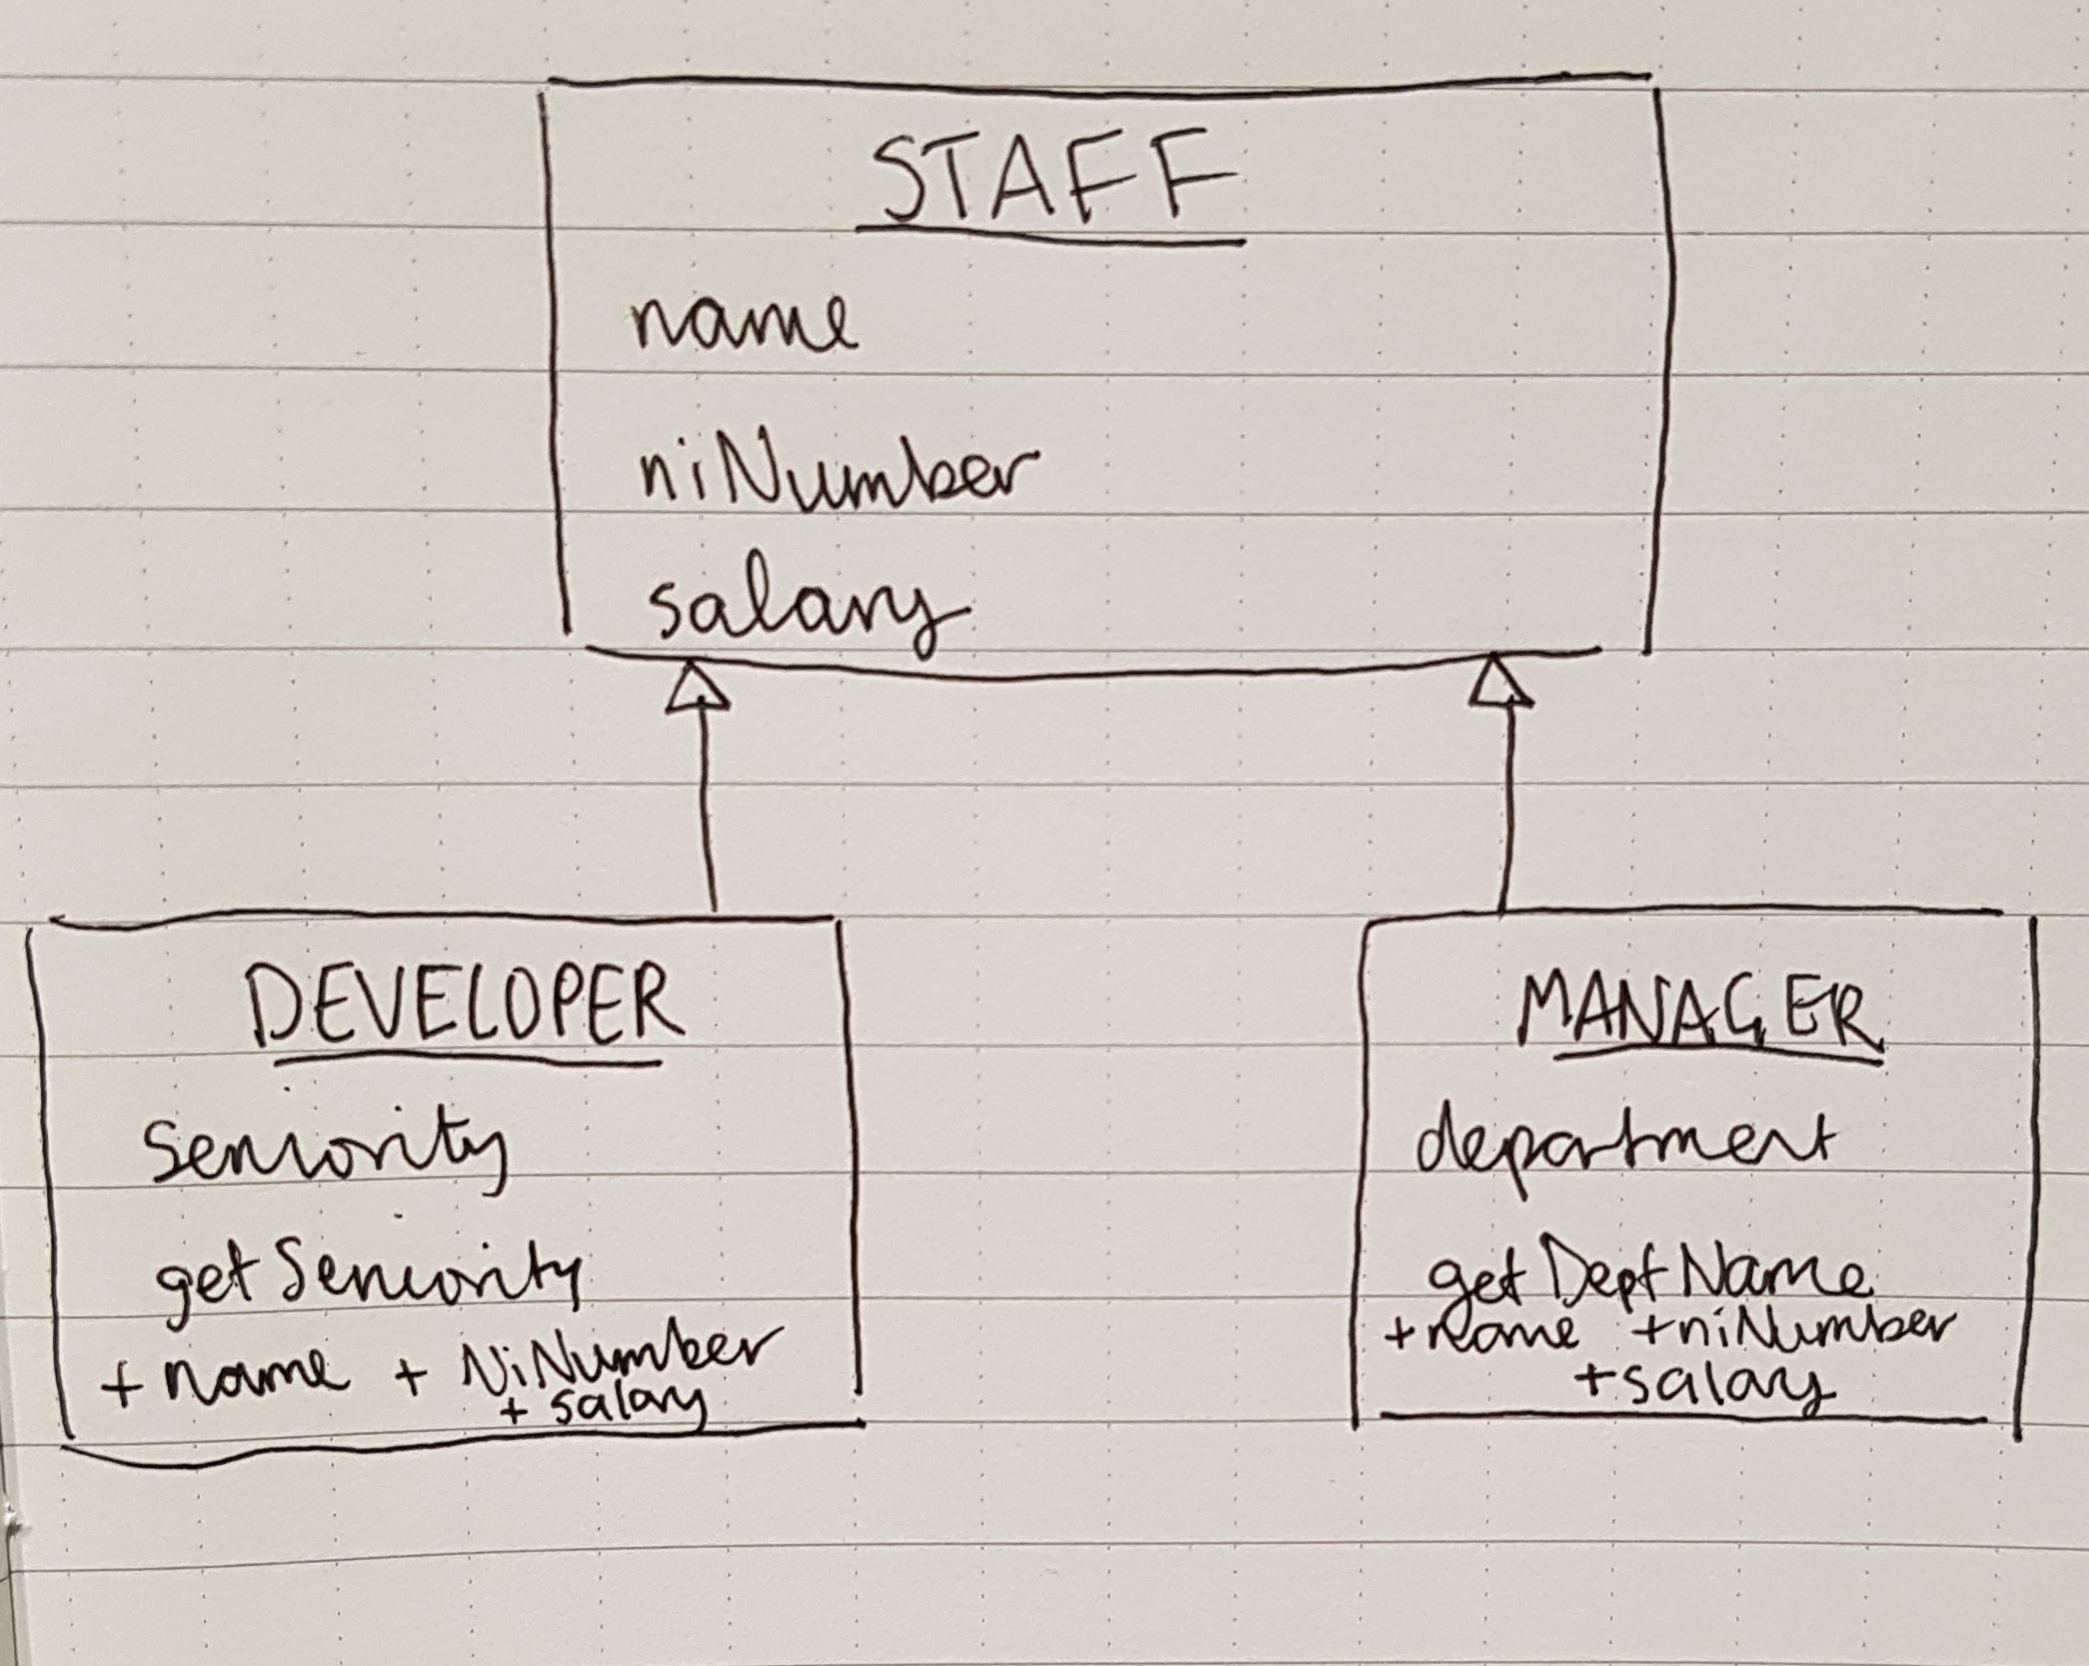 STAFF
name
niNumber
salary
DEVELOPER
seniority
getSeniority
+ name + NiNumber
+ salary
MANAGER
department
getDeptName
+name +niNumber
+salary